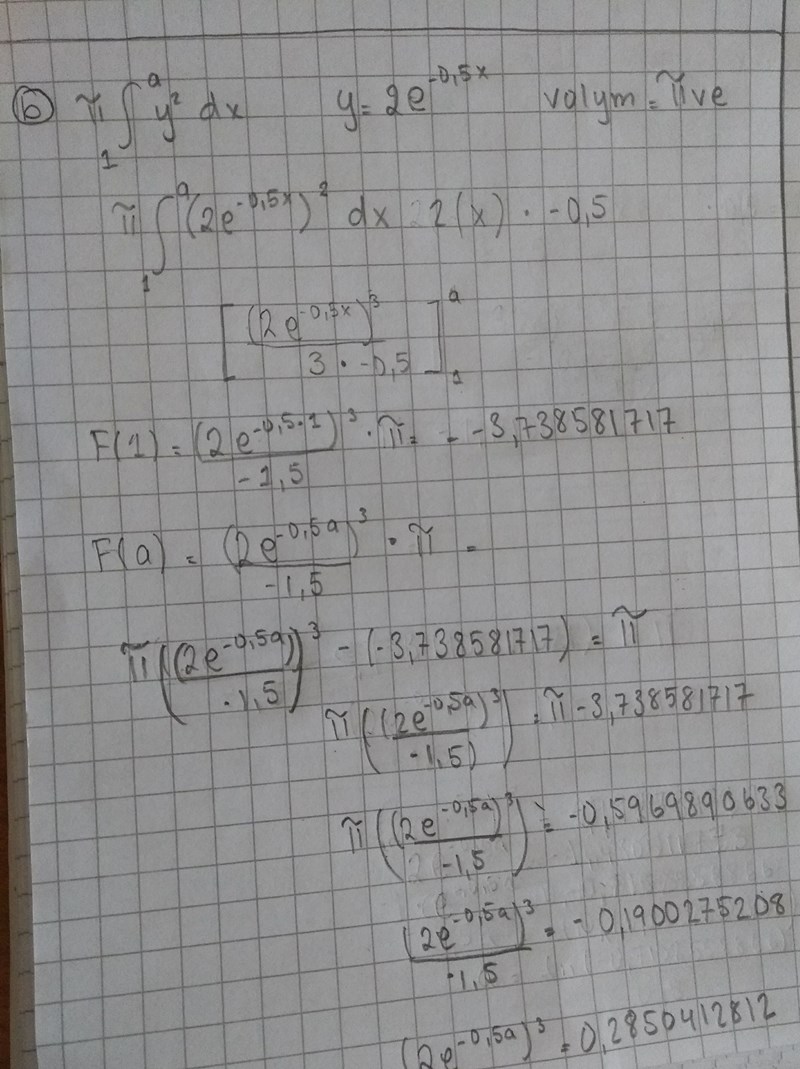 b) π∫₁ᵃ y² dx y = 2e^-0,5x volym = π ve
π∫₁ᵃ (2e^-0,5x)² dx 2(x) · -0,5
[(2e^-0,5x)³ / 3 · -0,5]₁ᵃ
F(1) = (2e^-0,5·1)³ / -1,5 · π = - -3,738581717
F(a) = (2e^-0,5a)³ / -1,5 · π =
π((2e^-0,5a) / -1,5)³ - (-3,738581717) = π
π((2e^-0,5a)³ / -1,5) = π - 3,738581717
π((2e^-0,5a)³ / -1,5) = -0,5969890633
(2e^-0,5a)³ / -1,5 = -0,1900275208
(2e^-0,5a)³ = 0,2850412812